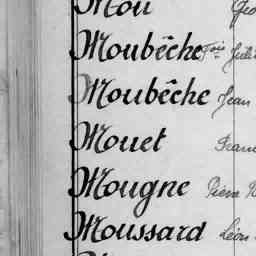 Mou
Moubêche Fois
Moubêche Jean
Mouet
Mougne Pierre
Moussard Léon